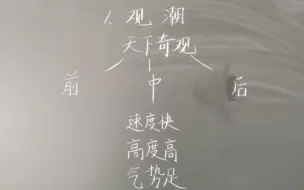 1、观潮
天下奇观
前 中 后
速度快
高度高
气势足